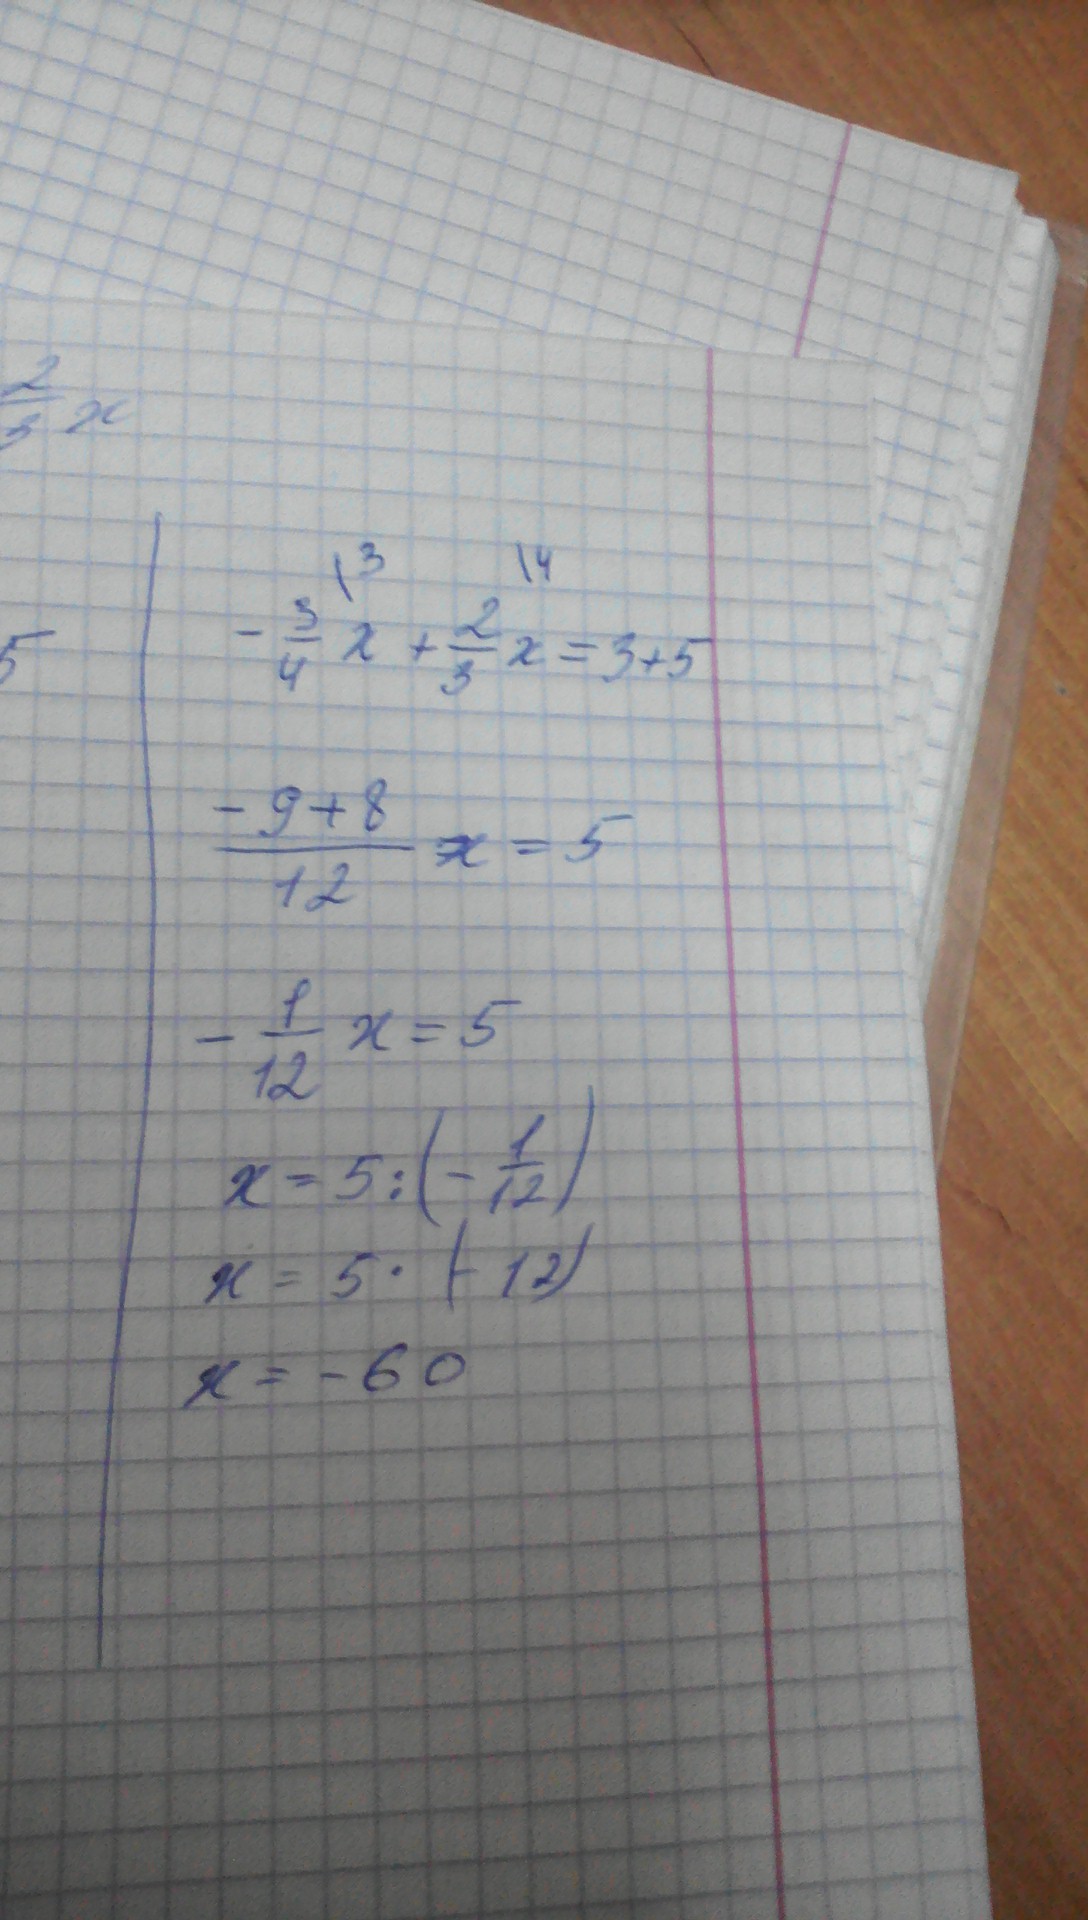 2/3 x
5
\3 \4
- 3/4 x + 2/3 x = 3+5
(-9+8)/12 x = 5
- 1/12 x = 5
x = 5 : (- 1/12)
x = 5 · (-12)
x = -60